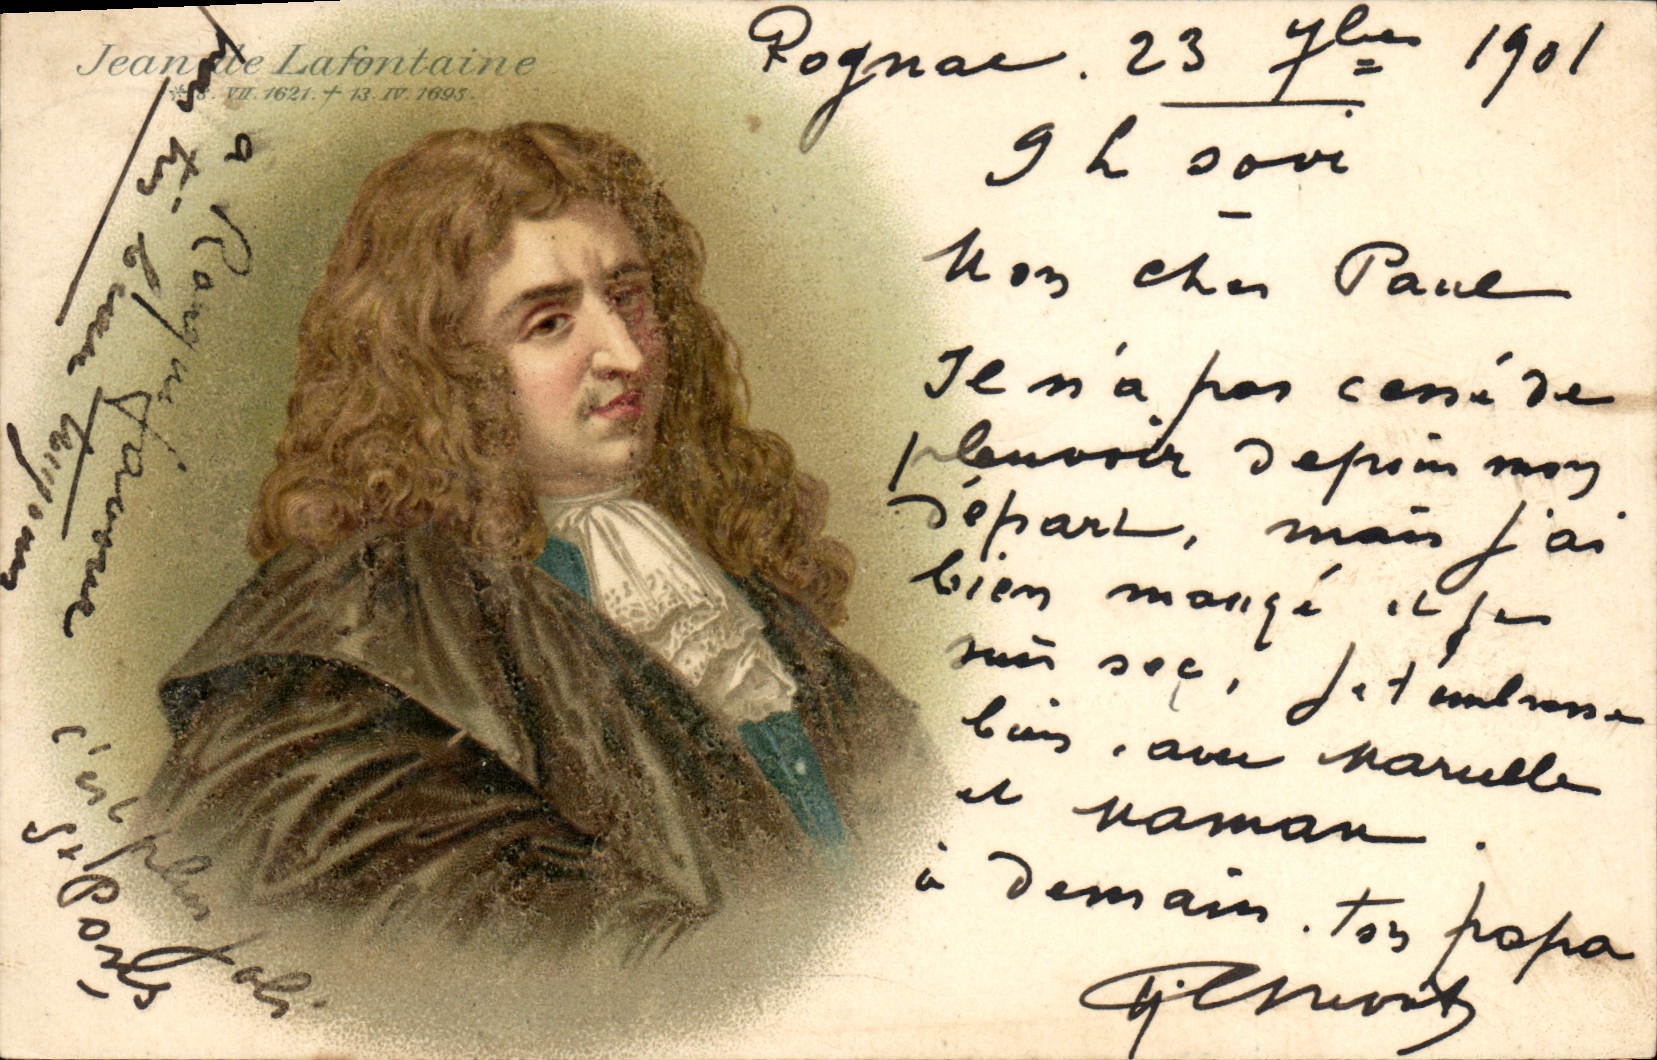 Jean de Lafontaine
* 8. VII. 1621. † 13. IV. 1695.
Rognac. 23 7bre 1901
9 h soir
Mon cher Paul
Il n'a pas cessé de
pleuvoir depuis mon
départ, mais j'ai
bien mangé et je
suis sec, je t'embrasse
bien, avec Marcelle
et Maman.
à demain. ton papa
c'est plus joli
St Paris